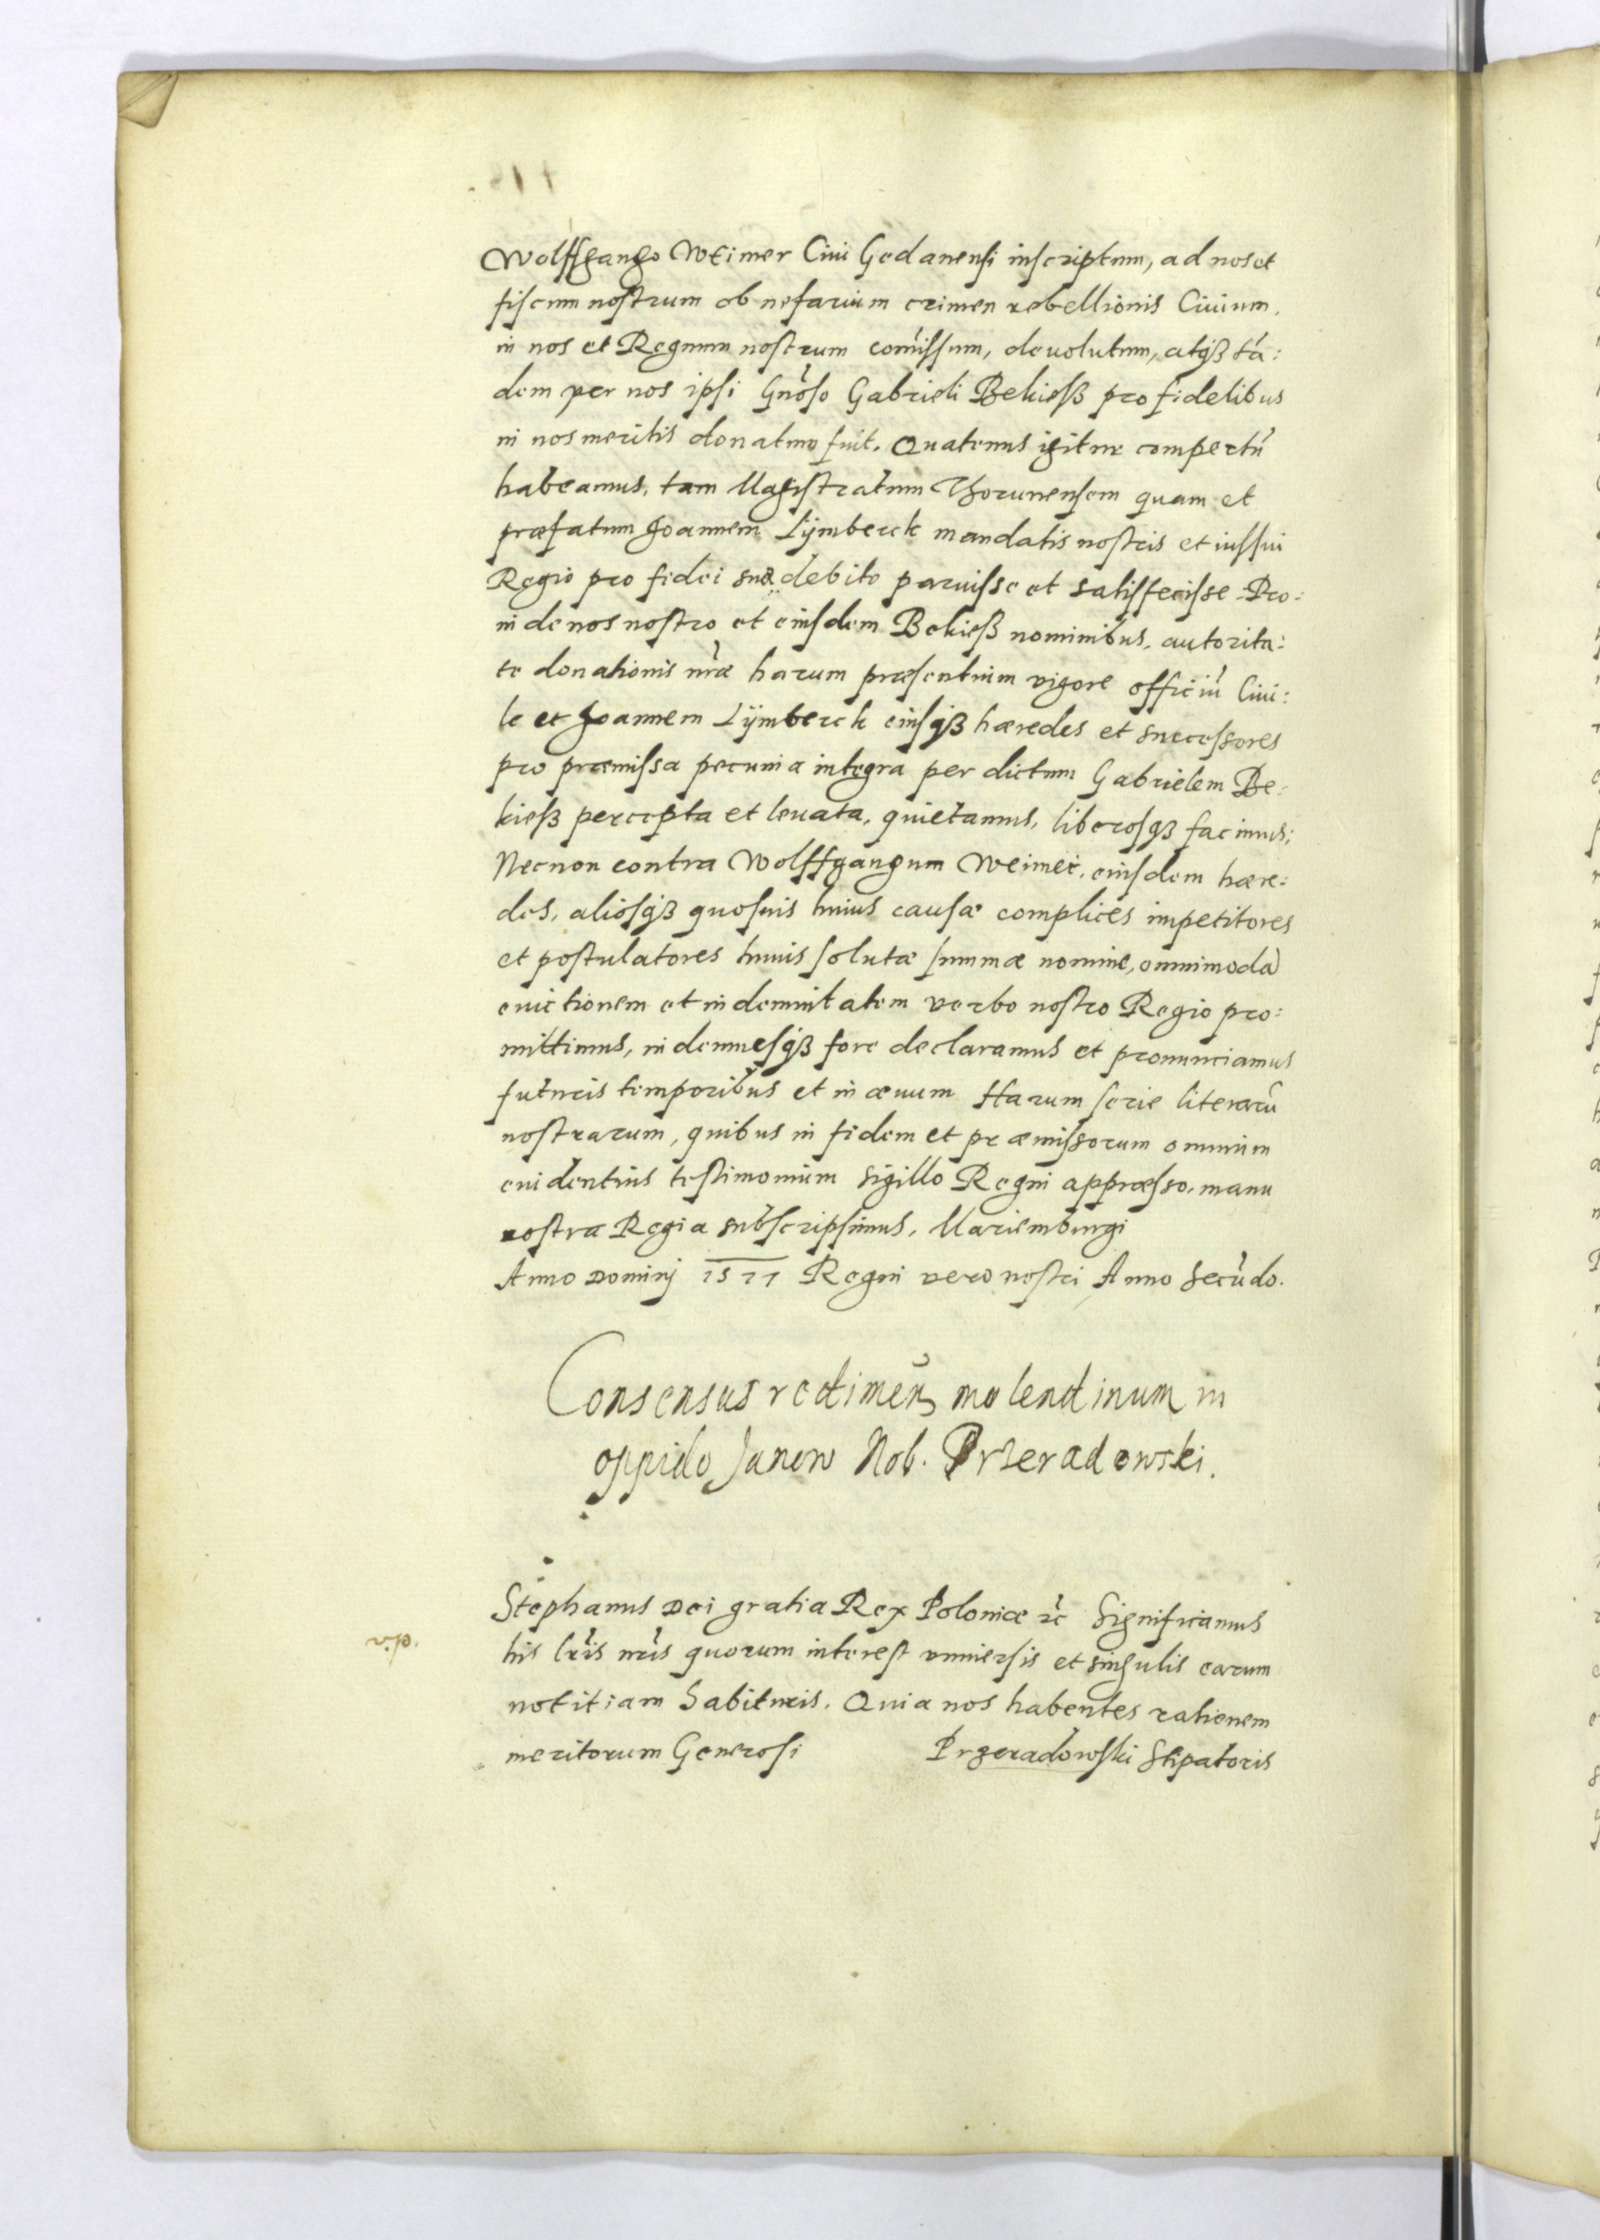 Wolffgango Weimer Ciui Gedanensi inscriptum, ad nos et
fiscum nostrum ob nefarium crimen rebellionis Ciuium,
in nos et Regnum nostrum comissum, deuolutum, atqȝ tã:
dem per nos ipsi Gnõso Gabrieli Bekieß pro fidelibus
in nos meritis donatum fuit. Quatenus igitur compertũ
habeamus, tam Magistratum Thorunensem quam et
præfatum Joannem Lÿmberck mandatis nostris et iussui
Regio pro fidei suæ debito paruisse et satisfecisse. Pro:
inde nos nostro et eiusdem Bekieß nominibus, autorita:
te donationis nræ harum præsentium vigore officiũ Ciui:
le et Joannem Lÿmberck eiusqȝ hæredes et successores
pro præmissa pecunia integra per dictum Gabrielem Be:
kieß percepta et leuata, quietamus, liberosqȝ facimus;
Necnon contra Wolffgangum Weimer, eiusdem hære:
des, aliosqȝ quosuis huius causæ complices impetitores
et postulatores huius solutæ summæ nomine, omnimodã
euictionem et indemnitatem verbo nostro Regio pro:
mittimus, indemnesqȝ fore declaramus et pronunciamus
futuris temporibus et in æuum Harum serie literarũ
nostrarum, quibus in fidem et præmissorum omnium
euidentius testimonium sigillo Regni appræsso, manu
nostra Regia subscripsimus, Mariemburgi
Anno Dominj 1577 Regni vero nostri Anno Secũdo.
Consensus redimen molendinum in
oppido Janow Nob. Przeradowski.
Stephanus Dei gratia Rex Poloniæ ꝛc̃ Significamus
v.p.
his lr̃is nr̃is quorum interest vniuersis et singulis earum
notitiam habituris. Quia nos habentes rationem
meritorum Generosi Przeradowski Stipatoris